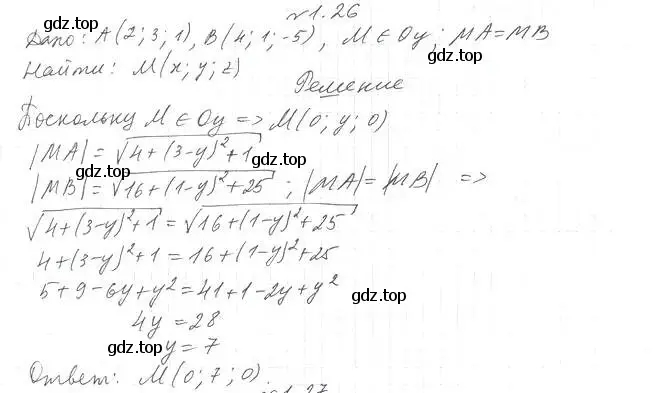 №1.26
Дано: A(2; 3; 1), B(4; 1; -5), M ∈ Oy; MA = MB
gdz.top gdz.top
Найти: M(x; y; z)
gdz.top
Решение
Поскольку M ∈ Oy => M(0; y; 0)
gdz.top gdz.top
|MA| = √4+(3-y)²+1
gdz.top
|MB| = √16+(1-y)²+25 ; |MA| = |MB| =>
gdz.top
√4+(3-y)²+1 = √16+(1-y)²+25
gdz.top
4+(3-y)²+1 = 16+(1-y)²+25
5+9-6y+y² = 41+1-2y+y²
gdz.top
4y = 28
gdz.top
y = 7
gdz.top
Ответ: M(0; 7; 0)
gdz.top